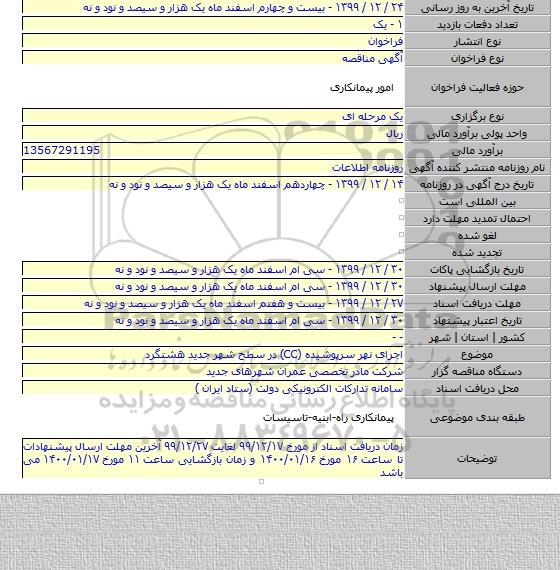 تاریخ آخرین به روز رسانی ۲۴ / ۱۲ / ۱۳۹۹ - بیست و چهارم اسفند ماه یک هزار و سیصد و نود و نه
تعداد دفعات بازدید ۱ - یک
نوع انتشار فراخوان
نوع فراخوان آگهی مناقصه
حوزه فعالیت فراخوان امور پیمانکاری
نوع برگزاری یک مرحله ای
واحد پولی برآورد مالی ریال
برآورد مالی 13567291195
نام روزنامه منتشر کننده آگهی روزنامه اطلاعات
تاریخ درج آگهی در روزنامه ۱۴ / ۱۲ / ۱۳۹۹ - چهاردهم اسفند ماه یک هزار و سیصد و نود و نه
بین المللی است
احتمال تمدید مهلت دارد
لغو شده
تجدید شده
تاریخ بازگشایی پاکات ۳۰ / ۱۲ / ۱۳۹۹ - سی ام اسفند ماه یک هزار و سیصد و نود و نه
مهلت ارسال پیشنهاد ۳۰ / ۱۲ / ۱۳۹۹ - سی ام اسفند ماه یک هزار و سیصد و نود و نه
مهلت دریافت اسناد ۲۷ / ۱۲ / ۱۳۹۹ - بیست و هفتم اسفند ماه یک هزار و سیصد و نود و نه
تاریخ اعتبار پیشنهاد ۳۰ / ۱۲ / ۱۳۹۹ - سی ام اسفند ماه یک هزار و سیصد و نود و نه
کشور | استان | شهر - -
موضوع اجرای نهر سرپوشیده (CC) در سطح شهر جدید هشتگرد
دستگاه مناقصه گزار شرکت مادر تخصصی عمران شهرهای جدید
محل دریافت اسناد سامانه تدارکات الکترونیکی دولت (ستاد ایران )
پایگاه اطلاع رسانی مناقصه و مزایده
طبقه بندی موضوعی پیمانکاری راه-ابنیه-تاسیسات
۰۲۱-۸۸۳۴۹۶۷۰-۵
توضیحات زمان دریافت اسناد از مورخ ۹۹/۱۲/۱۷ لغایت ۹۹/۱۲/۲۷ آخرین مهلت ارسال پیشنهادات
تا ساعت ۱۶ مورخ ۱۴۰۰/۰۱/۱۶ و زمان بازگشایی ساعت ۱۱ مورخ ۱۴۰۰/۰۱/۱۷ می
باشد